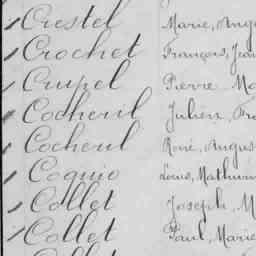 Crestel Marie, Ang
Crochet François, Jean
Crupel Pierre Ma
Cocheril Julien, Fra
Cocheril René, Augus
Coquio Louis, Mathurin
Collet Joseph, M
Collet Paul, Marie